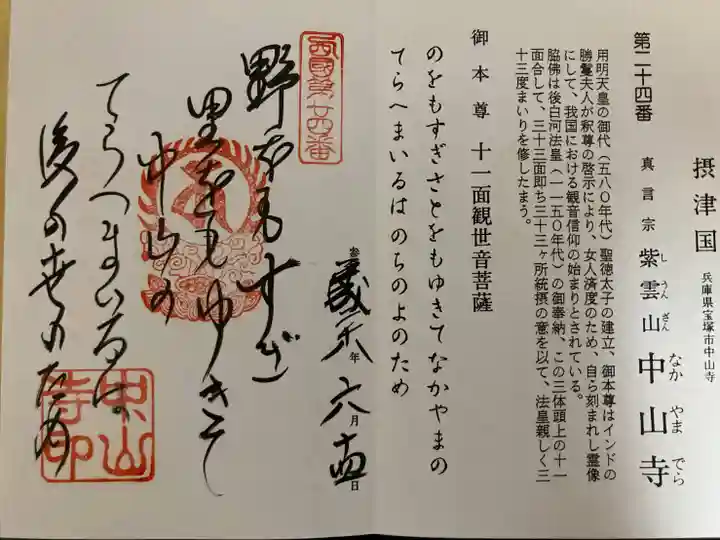 摂津国
兵庫県宝塚市中山寺
第二十四番
真言宗 紫雲山 中山寺
し うん ざん なか やま でら
用明天皇の御代（五八〇年代）聖徳太子の建立、御本尊はインドの
勝鬘夫人が釈尊の啓示により、女人済度のため、自ら刻まれし霊像
にして、我国における観音信仰の始まりとされている。
脇佛は後白河法皇（一一五〇年代）の御奉納、この三体頭上の十一
面合して、三十三面即ち三十三ヶ所統摂の意を以て、法皇親しく三
十三度まいりを修したまう。
御本尊 十一面観世音菩薩
のをもすぎさとをもゆきてなかやまの
てらへまいるはのちのよのため
西國第廿四番
野をもすぎ
里をもゆきて
中山の
てらへまいるは
後の世のため
年 六月 日
中山寺印